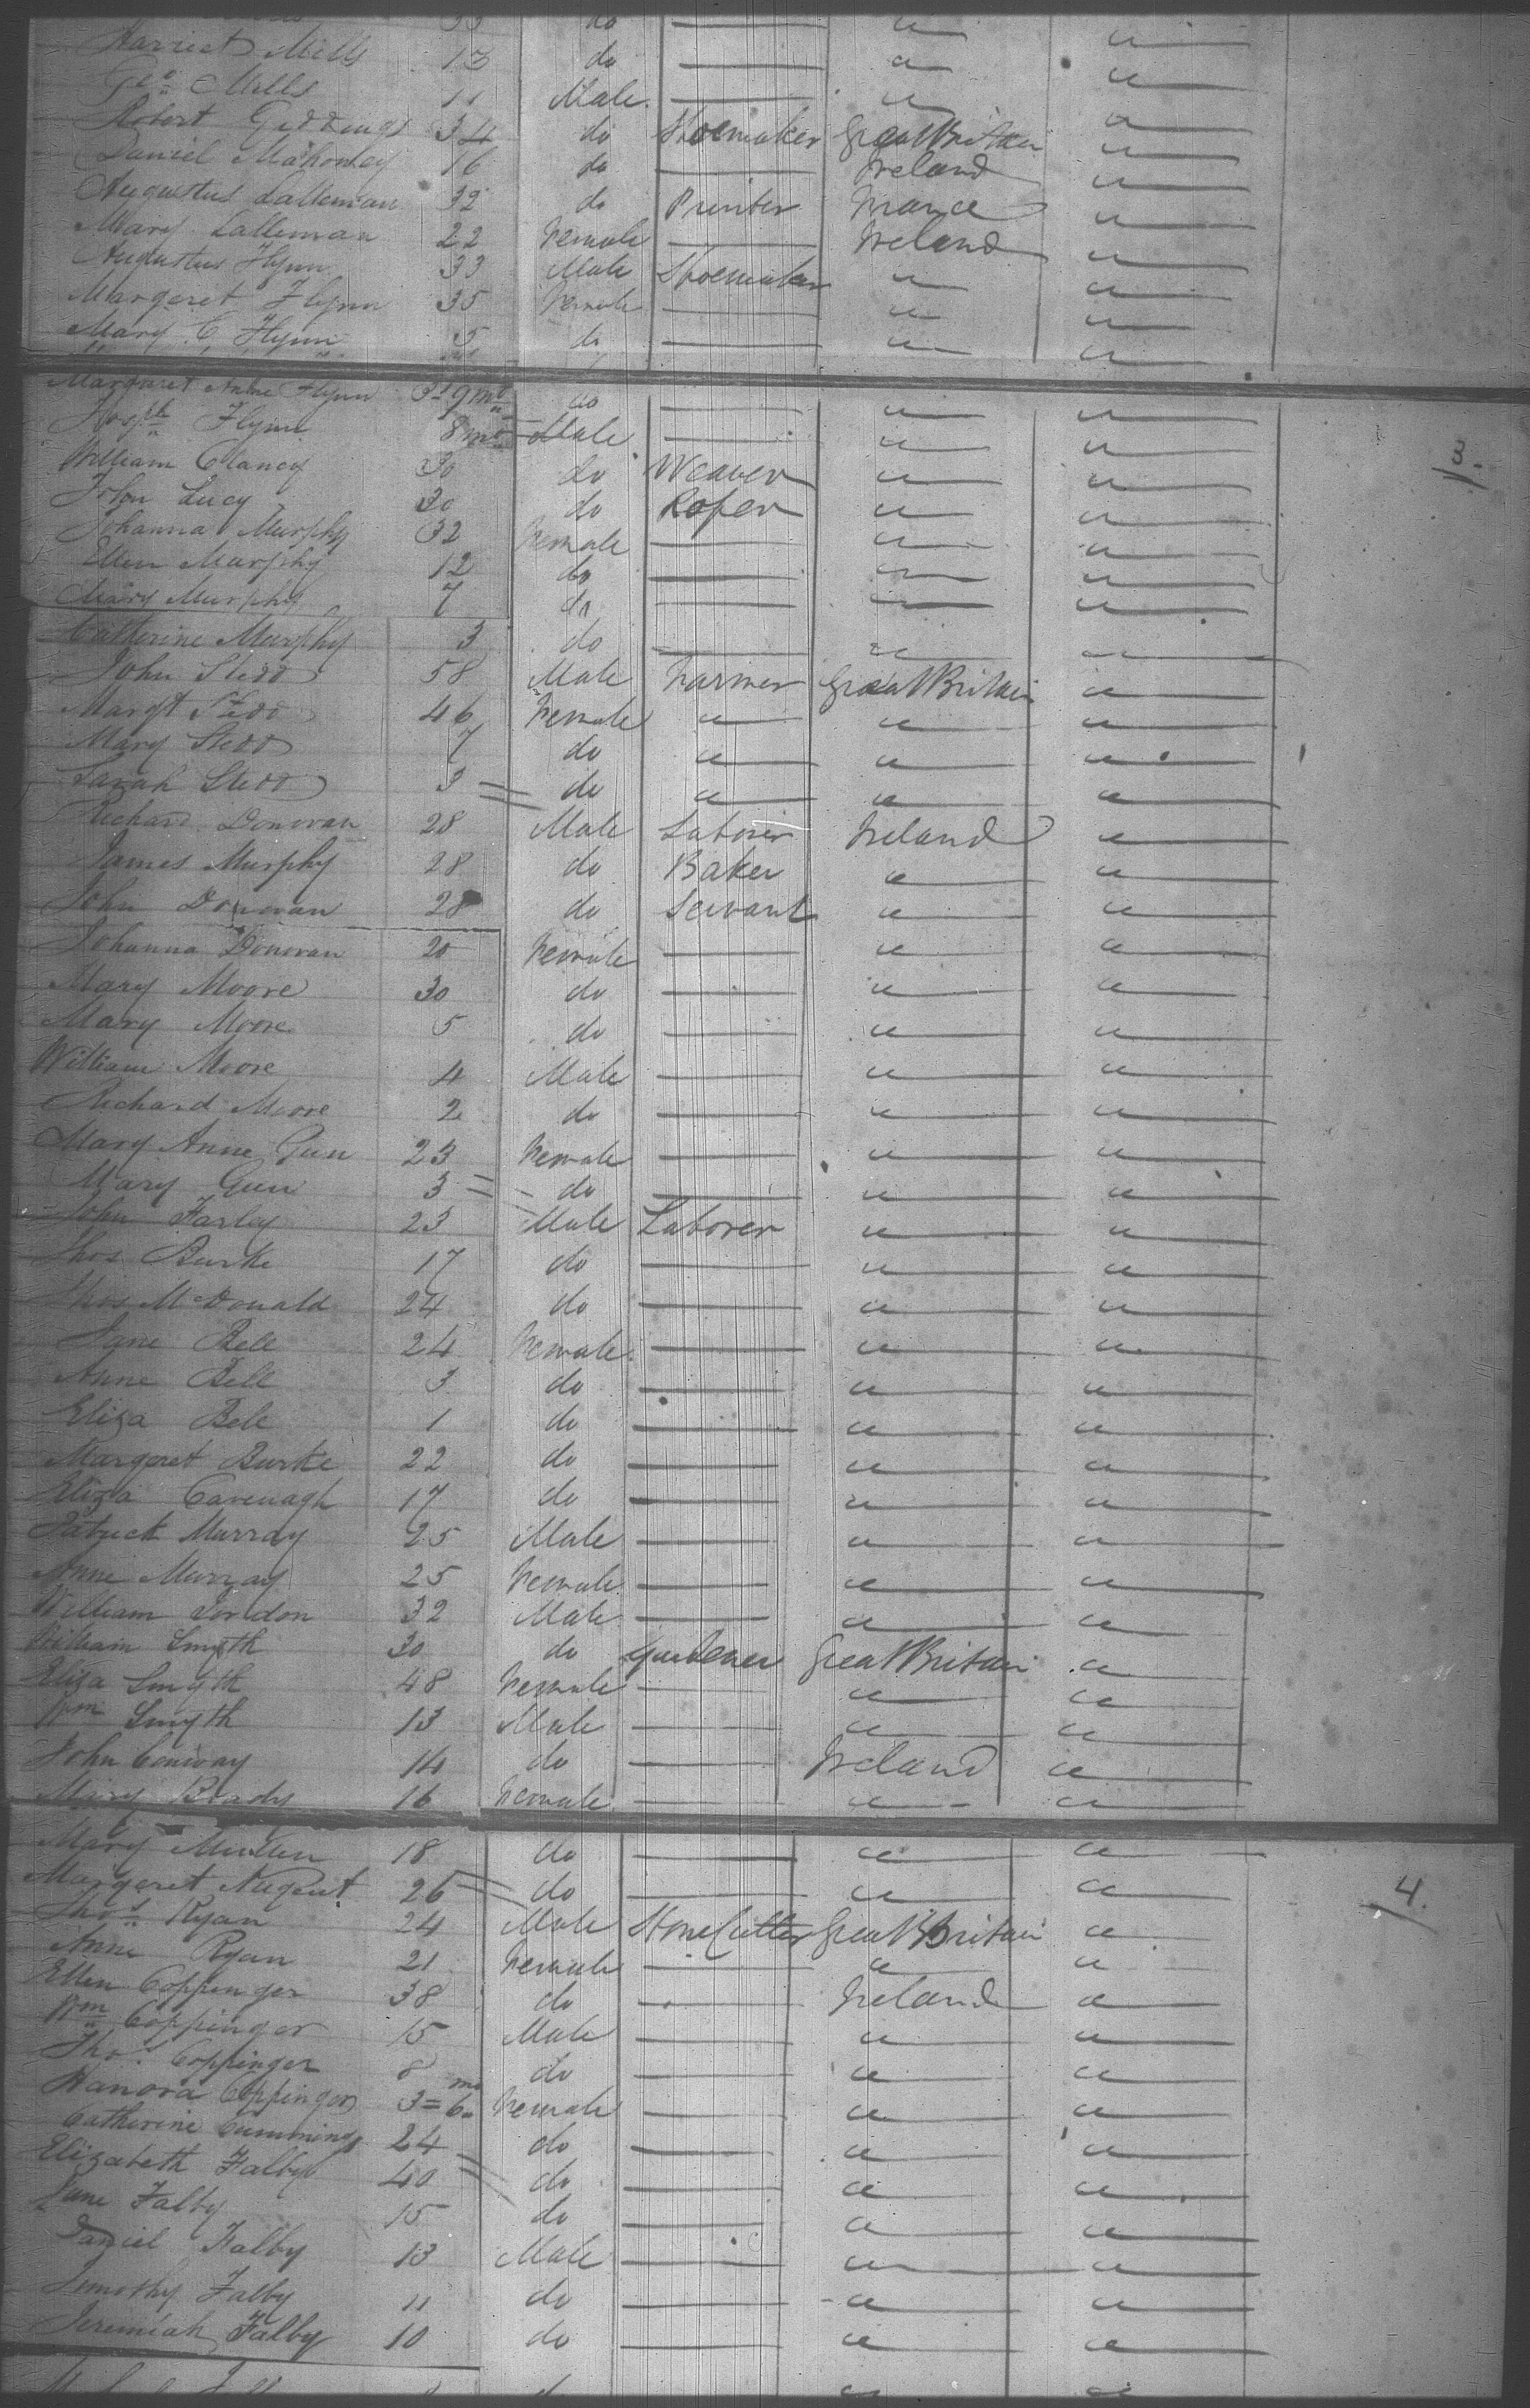 33 do — " "
Harriet Mills 13 do — " "
Geo Mills 11 Male — " "
Robert Giddings 34 do Shoemaker Great Britain "
Daniel Mahoney 16 do — Ireland "
Augustus Lalleman 32 do Printer France "
Mary Lalleman 22 Female — Ireland "
Augustus Flynn 33 Male Shoemaker " "
Margaret Flynn 35 Female — " "
Mary C Flynn 5 do — " "
Margaret Anne Flynn 3 = 9 mo do — " "
Josph Flynn 8 mo Male — " "
3.
William Clancy 30 do Weaver " "
John Lucy 30 do Roper " "
Johanna Murphy 32 Female — " "
Ellen Murphy 12 do — " "
Mary Murphy 7 do — " "
Catherine Murphy 3 do — " "
John Stedd 58 Male Farmer Great Britain "
Margt Stedd 46 Female " " "
Mary Stedd 7 do " " "
Sarah Stedd 3 do " " "
Richard Donovan 28 Male Laborer Ireland "
James Murphy 28 do Baker " "
John Donovan 28 do Servant " "
Johanna Donovan 20 Female — " "
Mary Moore 30 do — " "
Mary Moore 5 do — " "
William Moore 4 Male — " "
Richard Moore 2 do — " "
Mary Anne Gun 23 Female — " "
Mary Gun 3 do — " "
John Farley 23 Male Laborer " "
Thos Burke 17 do — " "
Thos McDonald 24 do — " "
Jane Bell 24 Female — " "
Anne Bell 3 do — " "
Eliza Bell 1 do — " "
Margaret Burke 22 do — " "
Eliza Cavenagh 17 do — " "
Patrick Murray 25 Male — " "
Anne Murray 25 Female — " "
William 32 Male — " "
William Smyth 30 do Gardener Great Britain "
Eliza Smyth 48 Female — " "
Wm Smyth 13 Male — " "
John Conway 14 do — Ireland "
Mary Brady 16 Female — " "
Mary 18 do — " "
Margaret Nugent 26 do — " "
4.
Thos Ryan 24 Male Stone Cutter Great Britain "
Anne Ryan 21 Female — " "
Ellen Coppinger 38 do — Ireland "
Wm Coppinger 15 Male — " "
Thos Coppinger 8 do — " "
Hanora Coppinger 3 = 6 mo Female — " "
Catherine Cummings 24 do — " "
Elizabeth Falby 40 do — " "
Jane Falby 15 do — " "
Daniel Falby 13 Male — " "
Timothy Falby 11 do — " "
Jeremiah Falby 10 do — " "